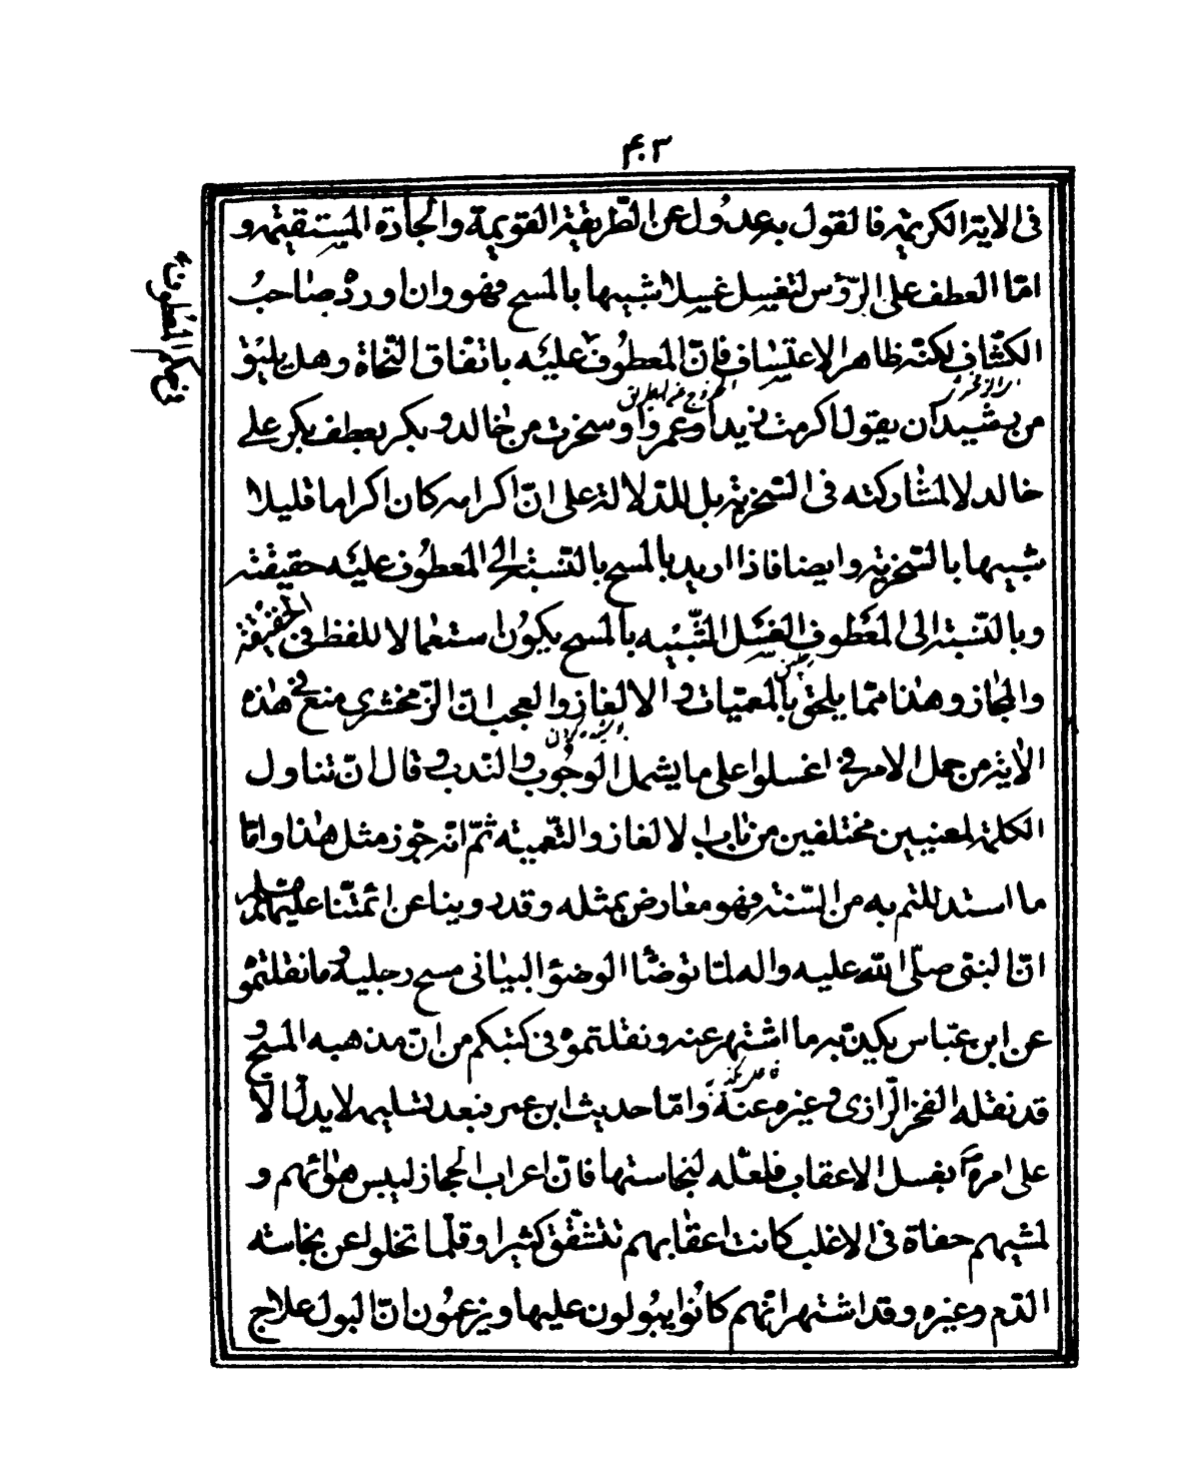 ۴۰۳
فى الاية الكريمة فالقول به عدول عن الطّريقة القويمة والجادة المستقيمة و
امّا العطف على الرّؤس لتغسل غسلا شبيها بالمسح فهو وان اورده صاحب
الكشّاف لكنّه ظاهر الاعتساف فانّ المعطوف عليه باتفاق النّحاة وهل يليق
من رشيد ان يقول اكرمت زيدا وعمروا وسخرت من خالد وبكر بعطف بكر على
خالد لا لمشاركته فى السّخرية بل للدّلالة على انّ اكرامه كان اكراما قليلا
شبيها بالسّخرية وايضا فاذا اريد بالمسح بالنّسبة الى المعطوف عليه حقيقته
وبالنّسبة الى المعطوف الغسل الشّبيه بالمسح يكون استعمالا للفظ فى الحقيقة
والمجاز وهذا ممّا يلحق بالمعميّات والالغاز والعجب انّ الزّمخشرى منع فى هذه
الاية من حمل الامر فى اغسلوا على ما يشمل الوجوب والنّدب وقال انّ تناول
الكلمة لمعنيين مختلفين من باب الالغاز والتّعمية ثمّ انّه جوّز مثل هذا وامّا
ما استدللتم به من السّنّة فهو معارض بمثله وقد روينا عن ائمّتنا عليهم السّلم
انّ النبىّ صلّى الله عليه واله لمّا توضّأ الوضوء البيانى مسح رجليه وما نقلتموه
عن ابن عبّاس يكذّبه ما اشتهر عنه ونقلتموه فى كتبكم من انّ مذهبه المسح و
قد نقله الفخر الرّازى وغيره عنه وامّا حديث ابن عمر فبعد تسليمه لا يدلّ الّا
على امره بغسل الاعقاب فلعلّه لنجاستها فانّ اعراب الحجاز ليبس هوائهم و
لمشيهم حفاة فى الاغلب كانت اعقابهم تتشقّق كثيرا وقلّما تخلوا عن نجاسة
الدّم وغيره وقد اشتهر انّهم كانوا يبولون عليها ويزعمون انّ البول علاج